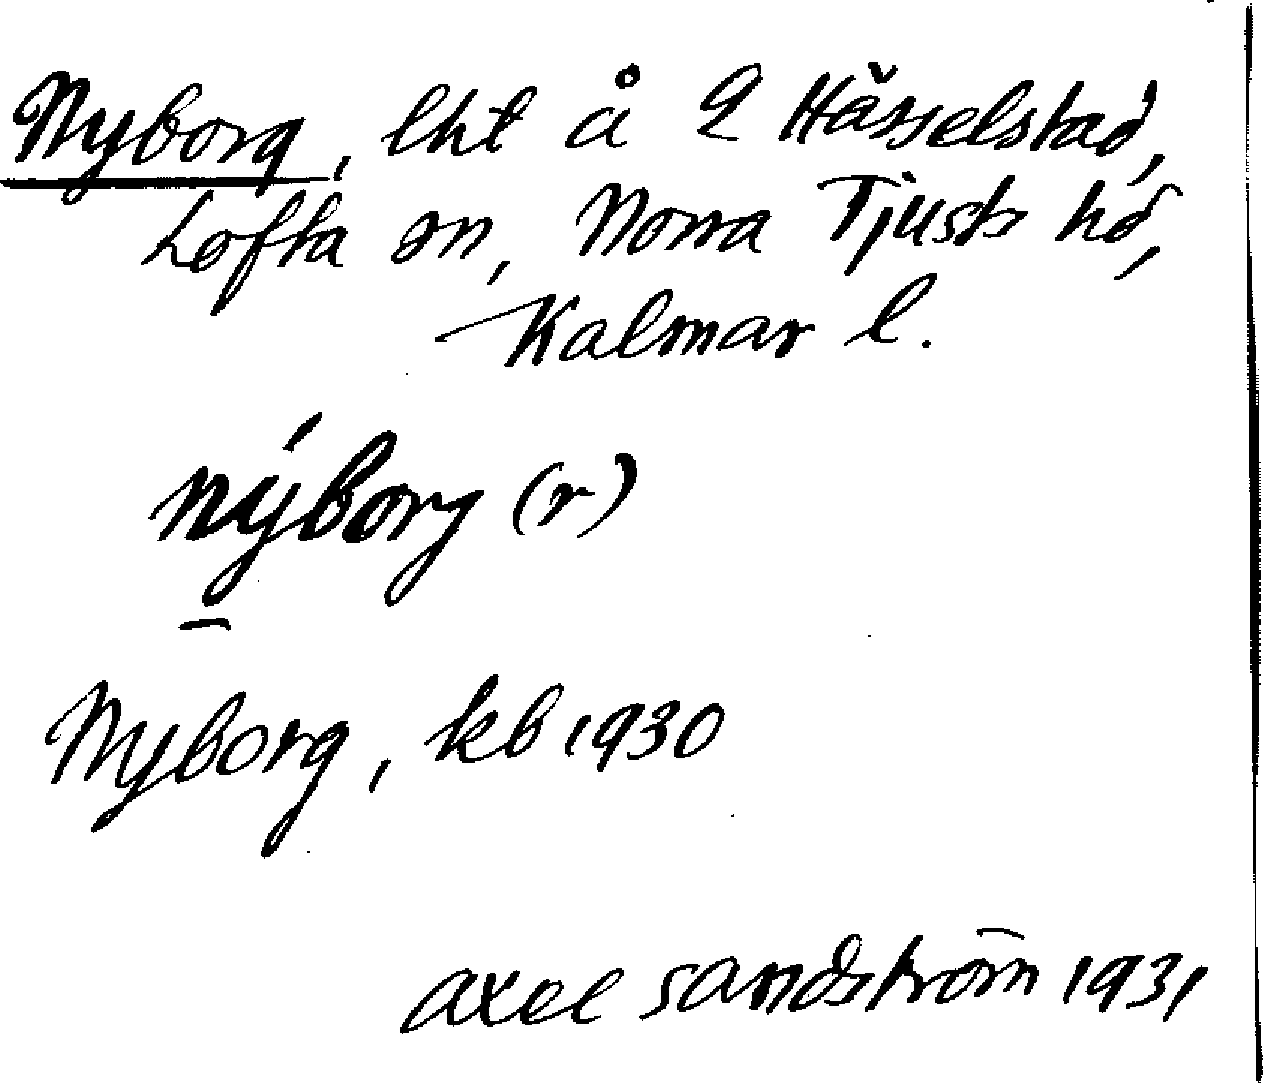 Nyborg, lht å 2 Hässelstad,
Lofta sn, Norra Tjusts hd,
Kalmar l.
nýborg (r)
Nyborg, kb 1930
Axel Sandström 1931